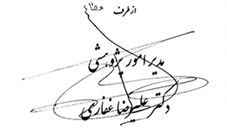 از طرف
مدیر امور پژوهشی
دکتر علیرضا غفاری